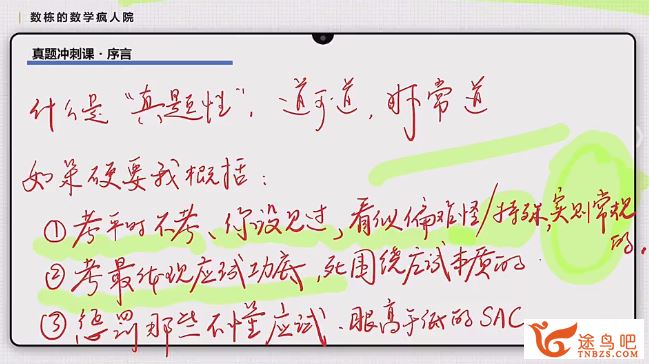 数栋的数学疯人院
真题冲刺课·序言
什么是“真题性”，道可道，非常道
如果硬要我概括：
①考平时不考、你没见过，看似偏难怪/特殊，实则常规的．
②考最体现应试功底，死围绕应试本质的．
③惩罚那些不懂应试．眼高手低的SAC
途鸟吧
TNBZS.COM